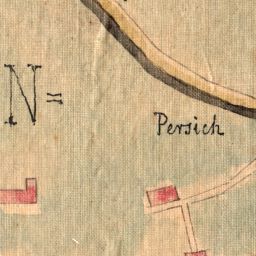 N=
Persich